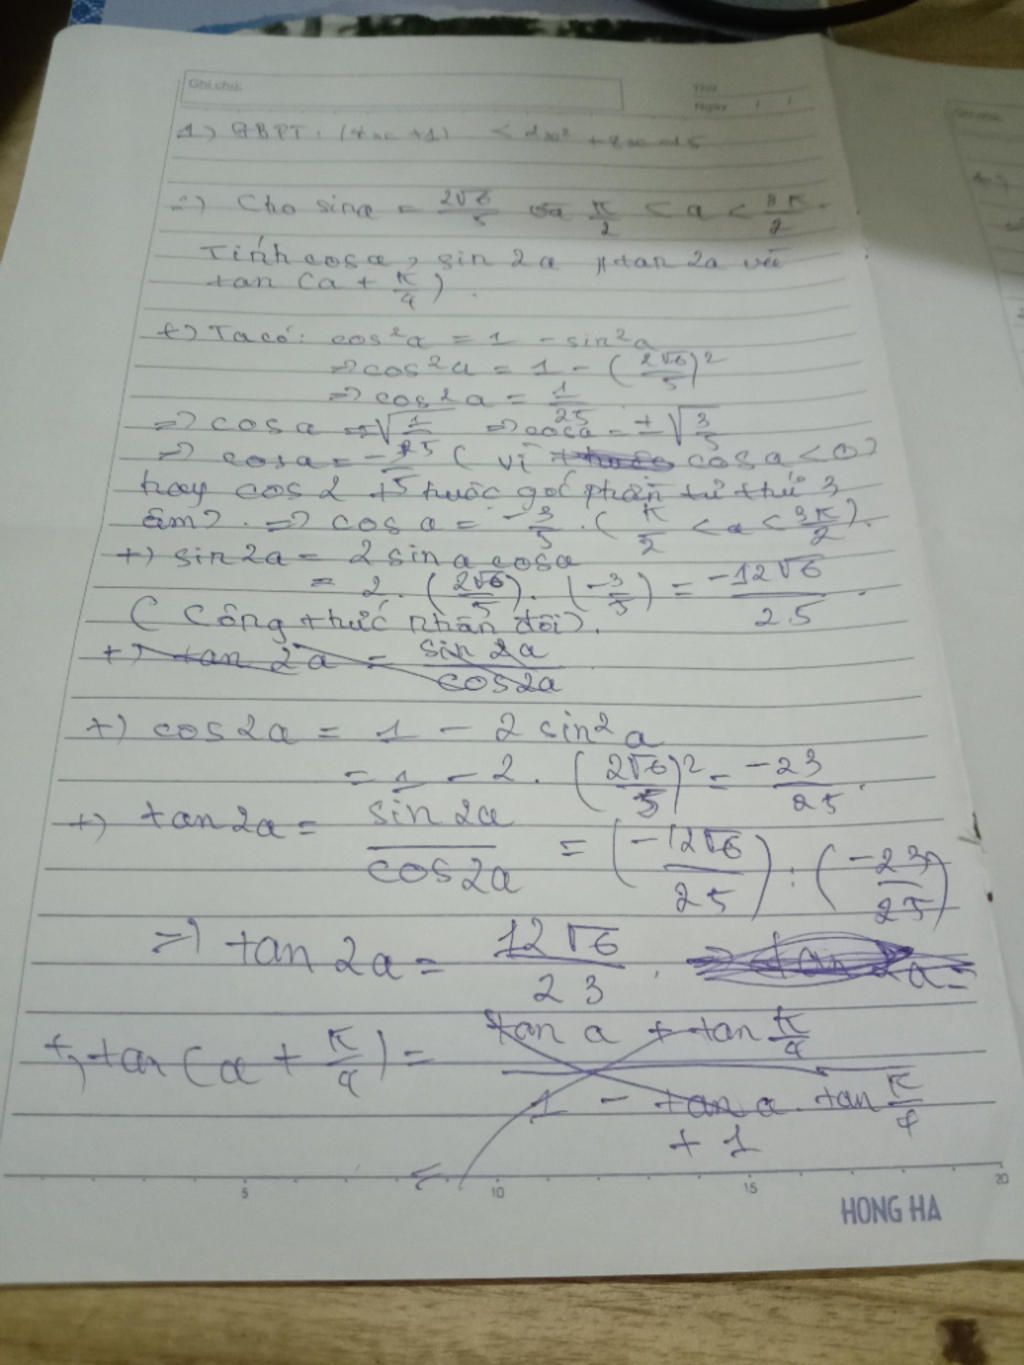 Ghi chú:
Thứ
Ngày / /
1) GBPT: (x +1) < 2x² + 8x
=) Cho sina = 2√6/5 và π/2 < a < 3π/2.
Tính cosa, sin 2a, tan 2a và
tan (a + π/4).
+) Ta có: cos²a = 1 - sin²a
=> cos²a = 1 - (2√6/5)²
=> cos²a = 1/25
=> cosa = √1/25 => cosa = ±√3/5
=> cosa = -1/5 ( vì cosa<0)
hay cos 2 thuộc góc phần tư thứ 3
âm). => cos a = -3/5. (π/2 < a < 3π/2).
+) sin2a = 2 sin a cosa
= 2. (2√6/5). (-3/5) = -12√6/25.
( Công thức nhân đôi).
+) tan 2a = sin 2a/cos2a
+) cos2a = 1 - 2 sin²a
= 1 - 2. (2√6/5)² = -23/25.
+) tan2a = sin 2a/cos2a = (-12√6/25) : (-23/25)
=) tan 2a = 12√6/23. => tan 2a=
+, tan(a + π/4) = tan a + tan π/4 / 1 - tan a. tan π/4
+ 1
5 10 15 20
HONG HA